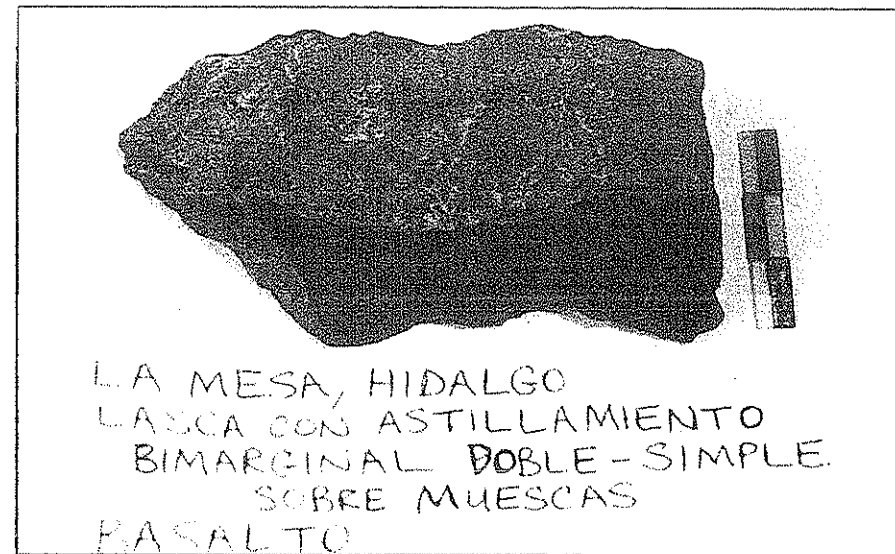 LA MESA, HIDALGO
LASCA CON ASTILLAMIENTO
BIMARGINAL DOBLE-SIMPLE.
SOBRE MUESCAS
BASALTO